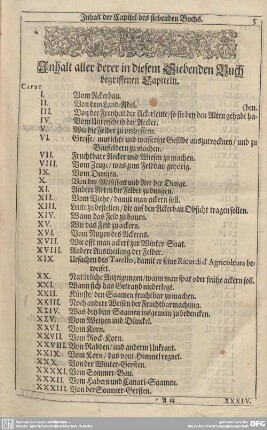 Inhalt der Capitel des siebenden Buchs. 5
Inhalt aller derer in diesem Siebenden Buch
begriffenen Capiteln.
Caput
I. Vom Ackerbau.
II. Von dem Land-Adel. (ben.
III. Von der Freyheit der Ackerleute, so sie bey den Alten gehabt ha-
IV. Vom Unterscheid der Aecker.
V. Wie die Felder zu verbessern.
VI. Grosse, morichte und wässerige Gefilde auszutrocknen, und zu
Baufeldern zu machen.
VII. Fruchtbare Aecker und Wiesen zu machen.
VIII. Vom Zeug, was zum Feldbau gehörig.
IX. Vom Dungen.
X. Von der Meistzeit und Art der Dunge.
XI. Andere Arten die Felder zu dungen.
XII. Vom Viehe, damit man ackern soll.
XIII. Leute zu bestellen, die auf den Ackerbau Obsicht tragen sollen.
XIV. Wann das Feld zu bauen.
XV. Wie das Feld zu ackern.
XVI. Vom Nutzen des Ackerns.
XVII. Wie offt man ackert zur Winter-Saat.
XVIII. Andere Austheilung der Felder.
XIX. Ursachen des Tarello, damit er seine Ricordi d'Agricoltura be-
weiset.
XX. Natürliche Anzeigungen, wann man spat oder frühe ackern soll.
XXI. Wann sich das Getraid niederlegt.
XXII. Künste, den Saamen fruchtbar zu machen.
XXIII. Noch andere Weisen der Fruchtbarmachung.
XXIV. Was bey dem Saamen insgemein zu bedencken.
XXV. Vom Weitzen und Dünckel.
XXVI. Vom Korn.
XXVII. Vom Rock-Korn.
XXVIII. Von Radden, und andern Unkraut.
XXIX. Vom Korn, das vom Himmel regnet.
XXX. Von der Winter-Gersten.
XXXI. Vom Sommer-Bau.
XXXII. Vom Habern und
XXXIII. Von der Sommer-Gersten.
A iij XXXIV.